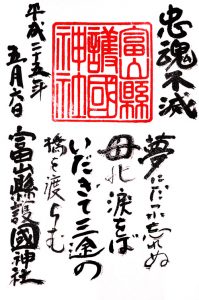 忠魂不滅
夢にだに忘れぬ
母の涙をば
いだきて三途の
橋を渡らむ
富山縣護國神社
富山縣
護國
神社
平成二十五年
五月六日